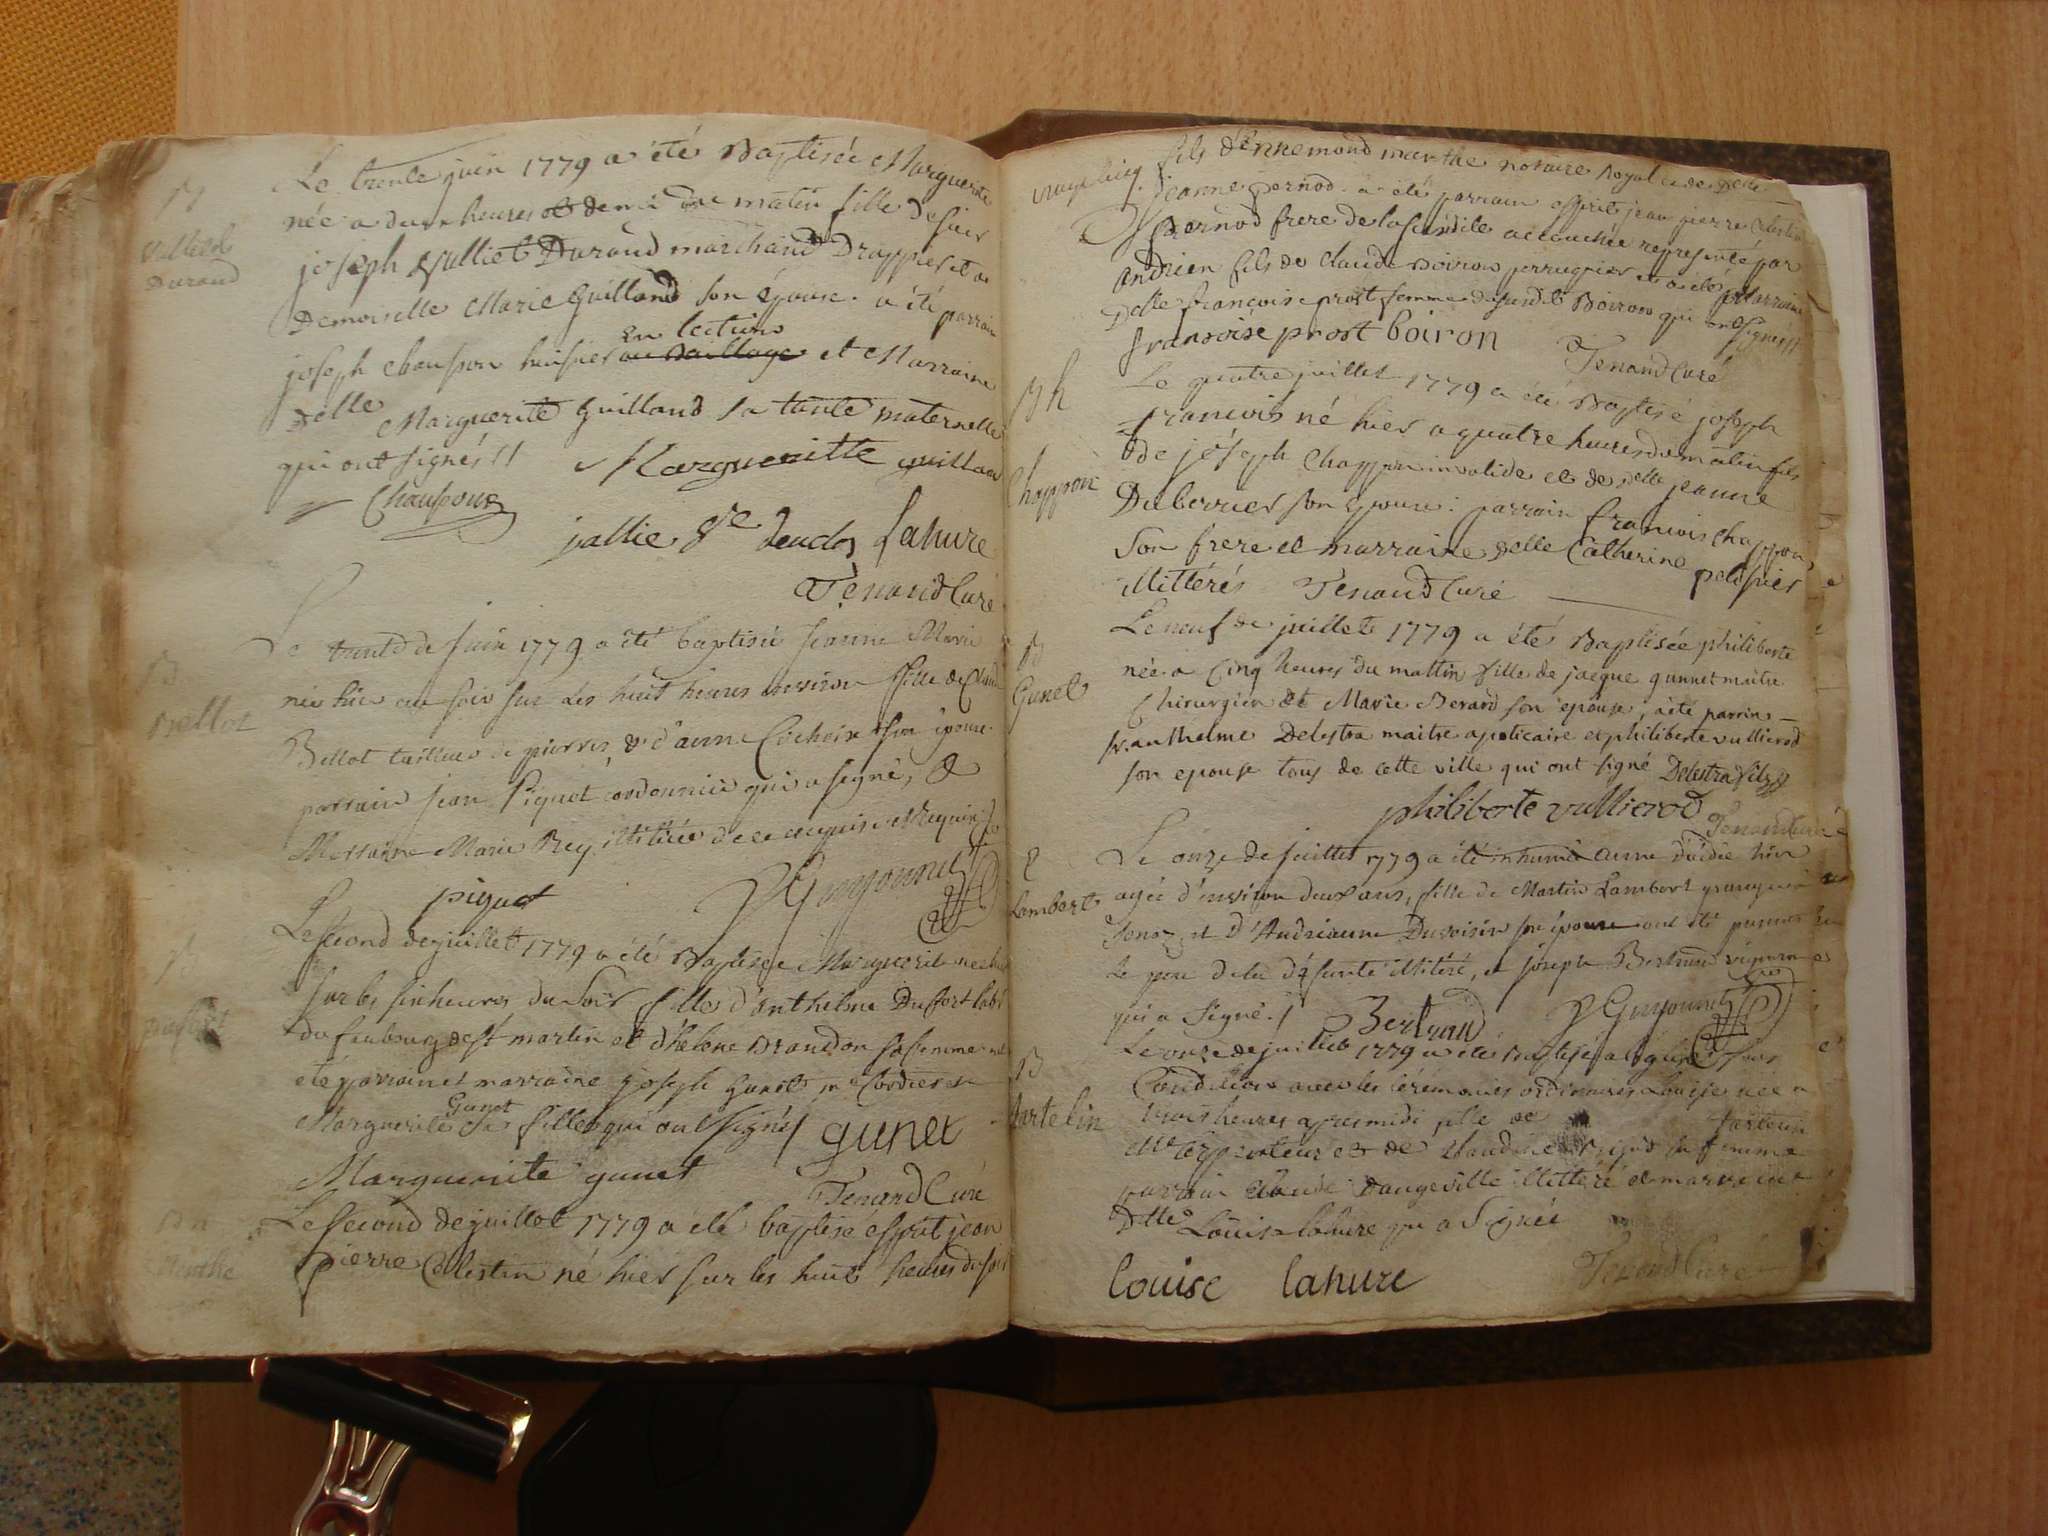 Le trente juin 1779 a été Baptisée Marguerite
née a deux heures et demi du matin fille de sieur
B
Vulliet
Durand
joseph Vulliet Durand marchand Drappier et de
Demoiselle Marie Guilland son épouse. a été parrain
en lection
joseph Chausson huissier au Baillage et Marraine
delle Marguerite Guilland sa tante maternelle
qui ont signés //
Marguenitte guilland
Chausson
jallie lahure
Tenand Curé
Le trente de Juin 1779 a été baptisée Jeanne Marie
B
Bellot
née hier au soir sur les huit heures environ fille de
Bellot tailleur de pierres, & d'anne son épouse
parrain Jean Piquet cordonnier qui a signé, &
Marraine Marie Rey illitérée de ce requise
piquet
Guyonnet
Le second de juillet 1779 a été Baptisée Marguerite née hier
B
sur les six heures du Soir fille d'anthelme Dufort
du faubourg de st martin et d'hélène Brandon sa femme
été parrain et marraine joseph Gunet et
Gunet
Marguerite sa fille qui ont signés / gunet
Marguerite gunet
Tenand Curé
B
Marthe
Le second de juillet 1779 a été baptisé esprit jean
pierre Célestin né hier sur les huit heures du soir
fils d'Ennemond marthe notaire Royal et de Delle
Jeanne pernod. a été parrain esprit jean pierre Célestin
pernod frere de la susdite accouchée représenté par
andrien fils de claude Boiron perruquier et a été Marraine
Delle francoise prost femme dudit Boiron qui ont signés //
fransoise prost boiron
Tenand Curé
B
Chappon
Le quatre juillet 1779 a été Baptisé joseph
francois né hier a quatre heures du matin fils
de joseph Chappon invalide et de delle jeanne
Duberrier son épouse: parrain francois chappon
son frere et marraine delle Catherine pelissier
illittérés Tenand Curé
B
Gunet
Le neuf de juillet 1779 a été Baptisée philiberte
née a cinq heures du mattin fille de jacque gunnet maitre
Chirurgien et Marie Berard son épouse, a été parrin
sr. anthelme Delestra maitre apoticaire et philiberte vullierod
son epouse tous de cette ville qui ont signé Delestra fils
philiberte vullierod Tenand Curé
Lambert
Le onze de juillet 1779 a été inhumée anne décédée hier
agée d'environ deux ans, fille de Martin Lambert granger
et d'Andrianne Duvoisin son épouse ont été présents
le pere de la défunte illitéré, et joseph Bertrand vigneron
qui a signé. / Bertrand Guyonnet
B
Le onze de juillet 1779 a été Baptisée a l'église sous
Condition avec les cérémonies ordinaires Louise née a
trois heures apres midi fille de
Me et de Claudine sa femme
parrain Claude Dangeville illittéré et marraine
Dlle Louise lahure qui a Signée
louise lahure
Tenand Curé